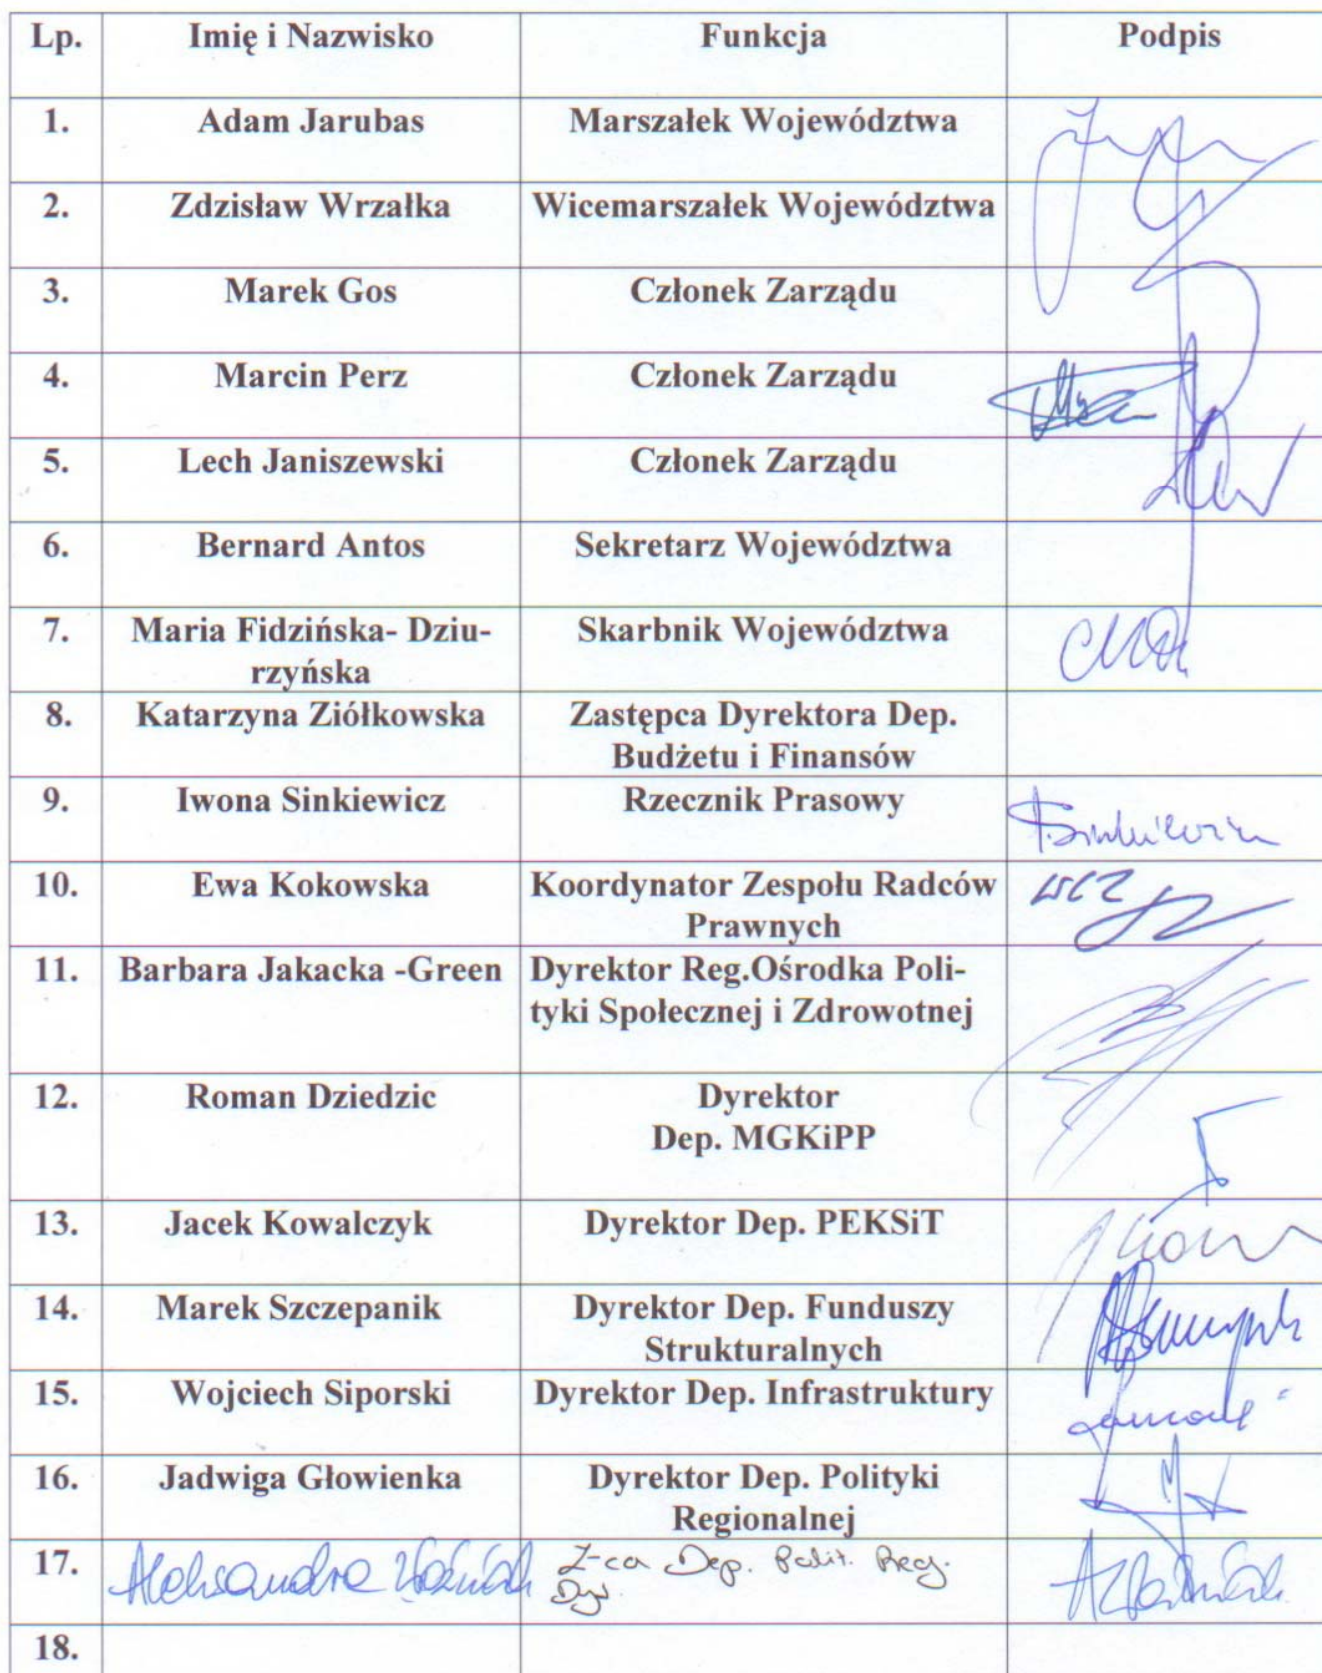 Lp. Imię i Nazwisko Funkcja Podpis
1. Adam Jarubas Marszałek Województwa
2. Zdzisław Wrzałka Wicemarszałek Województwa
3. Marek Gos Członek Zarządu
4. Marcin Perz Członek Zarządu
5. Lech Janiszewski Członek Zarządu
6. Bernard Antos Sekretarz Województwa
7. Maria Fidzińska- Dziu- Skarbnik Województwa
rzyńska
8. Katarzyna Ziółkowska Zastępca Dyrektora Dep.
Budżetu i Finansów
9. Iwona Sinkiewicz Rzecznik Prasowy
10. Ewa Kokowska Koordynator Zespołu Radców
Prawnych
11. Barbara Jakacka -Green Dyrektor Reg.Ośrodka Poli-
tyki Społecznej i Zdrowotnej
12. Roman Dziedzic Dyrektor
Dep. MGKiPP
13. Jacek Kowalczyk Dyrektor Dep. PEKSiT
14. Marek Szczepanik Dyrektor Dep. Funduszy
Strukturalnych
15. Wojciech Siporski Dyrektor Dep. Infrastruktury
16. Jadwiga Głowienka Dyrektor Dep. Polityki
Regionalnej
17. Aleksandra Z-ca Dep. Polit. Reg.
Dyr.
18.